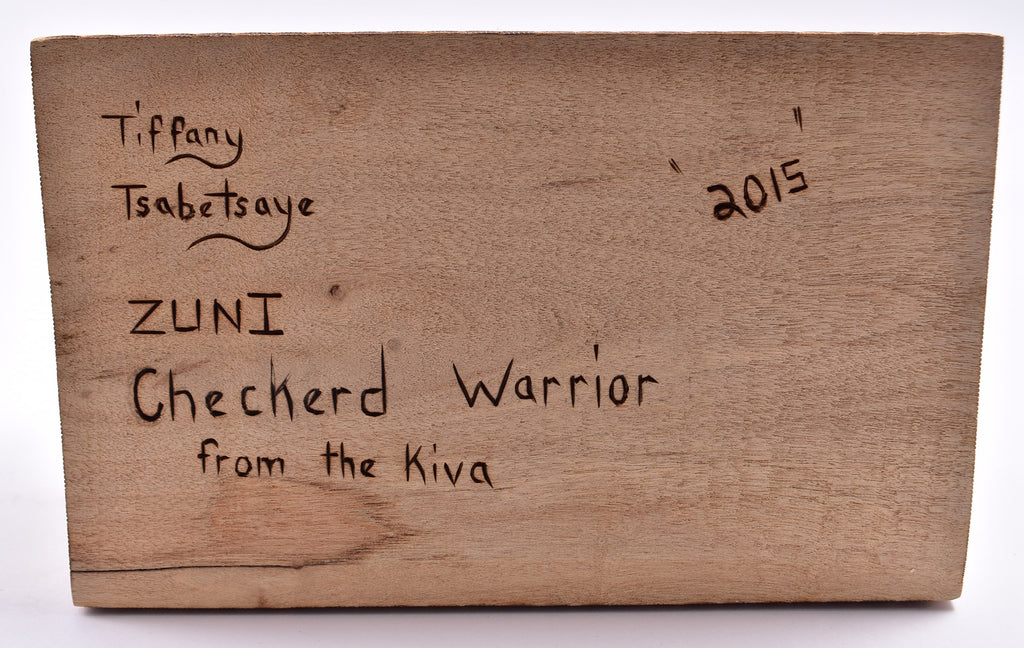 Tiffany
Tsabetsaye
"2015"
ZUNI
Checkerd Warrior
from the Kiva